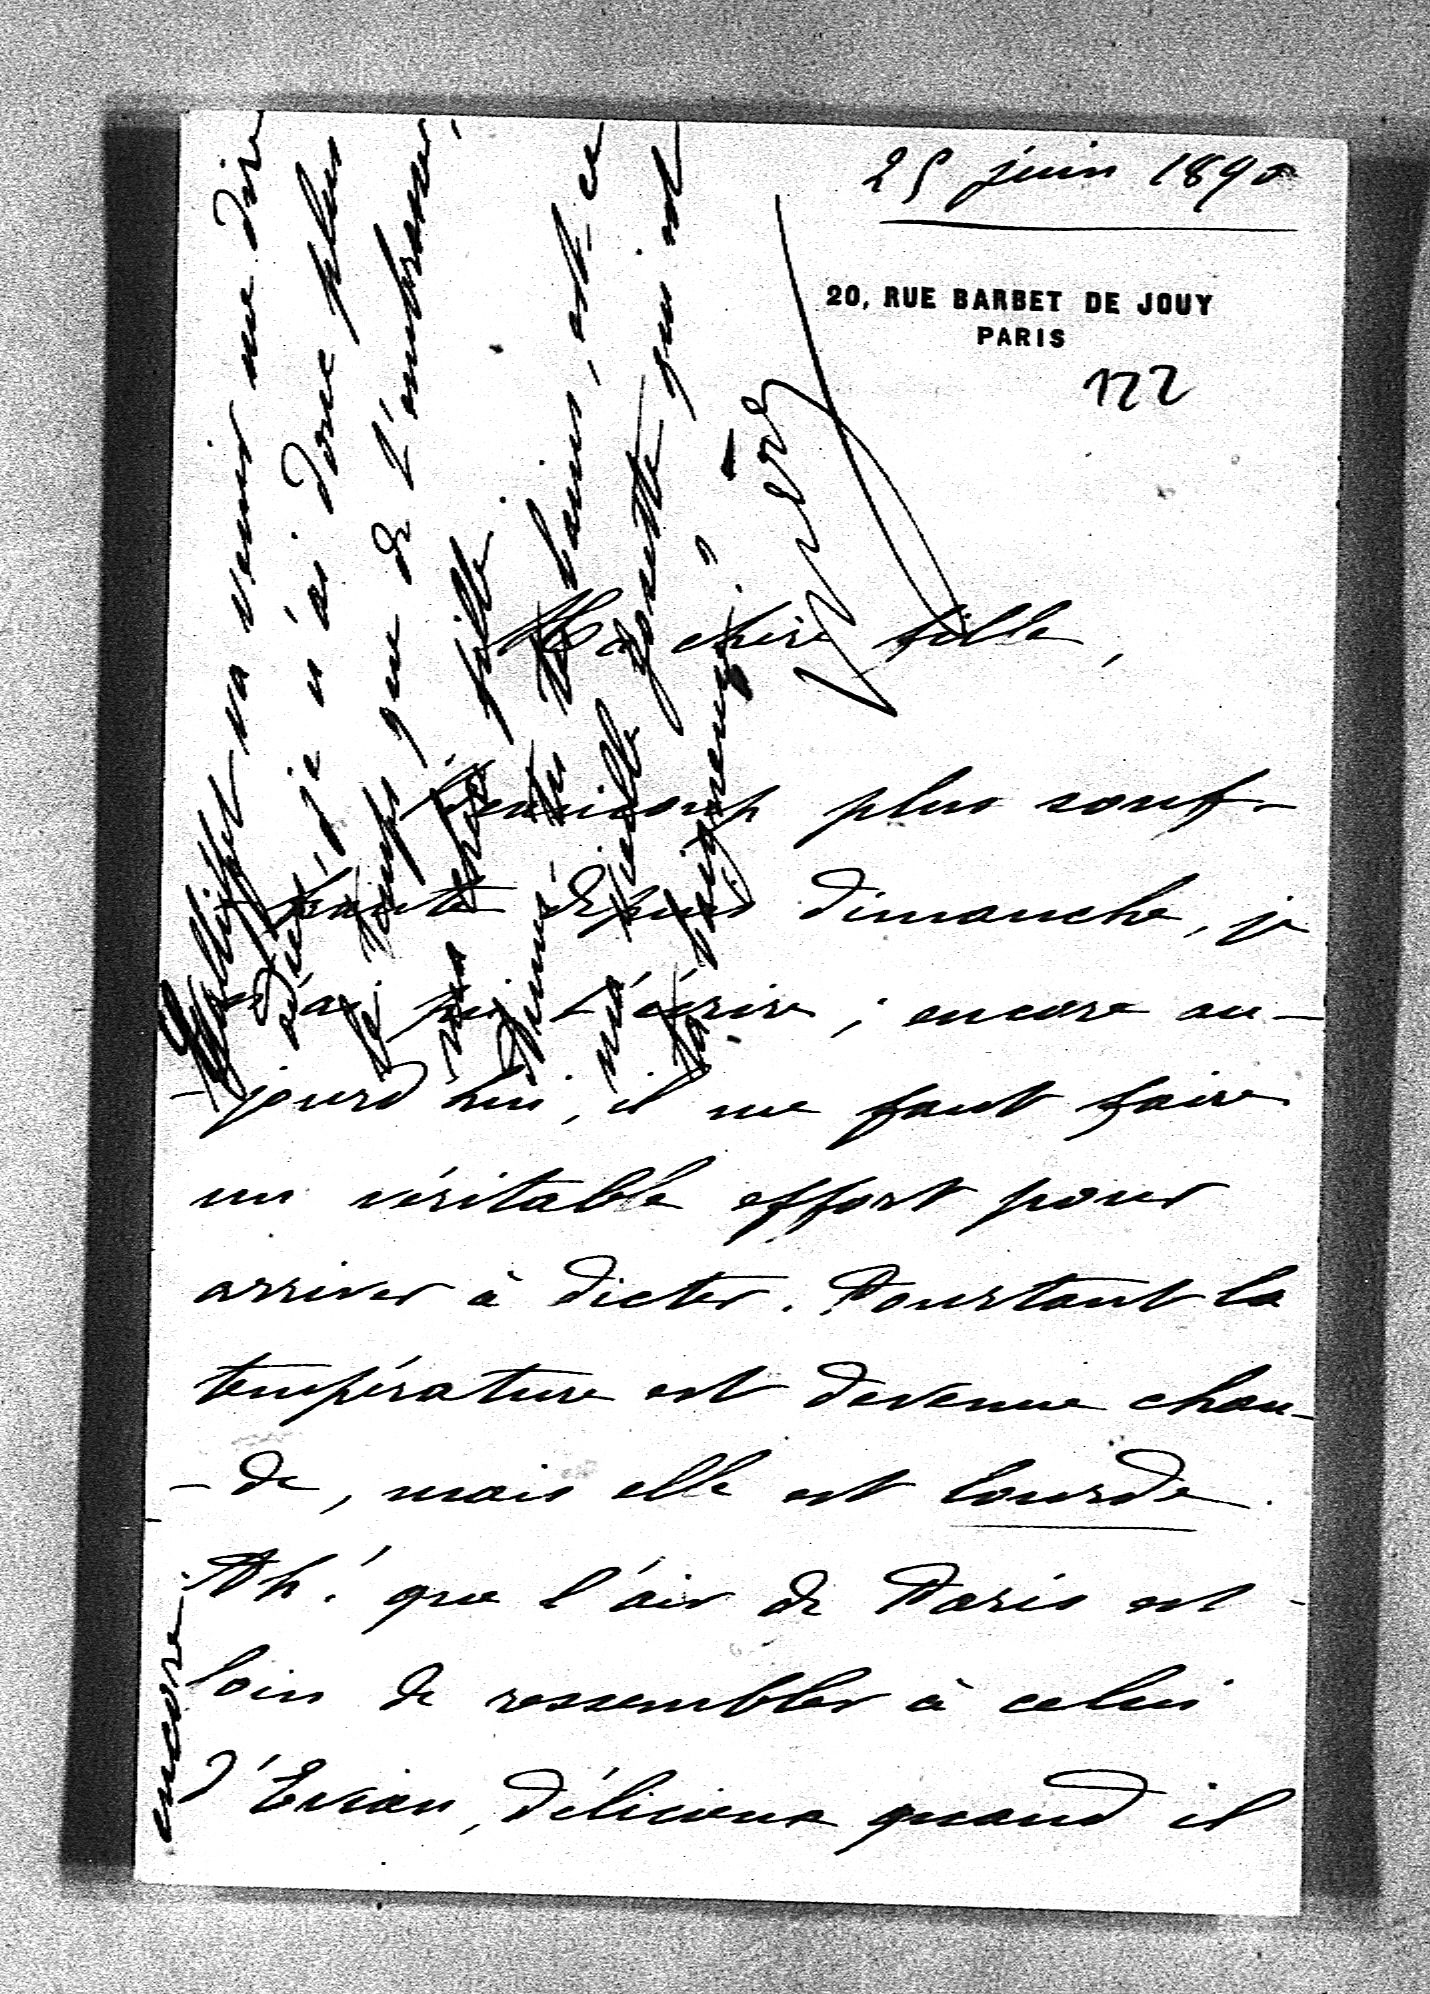 25 juin 1890
20, RUE BARBET DE JOUY
PARIS
122
Ma chère fille,
Beaucoup plus souf-
-frante depuis dimanche, je
n'ai pu t'écrire ; encore au-
-jourd'hui, il me faut faire
un véritable effort pour
arriver à dicter. Pourtant la
température est devenue chau-
-de, mais elle est lourde.
Ah ! que l'air de Paris est
loin de ressembler à celui
d'Evian, délicieux quand il
encore.
Galliffet va venir me dire
adieu, je n'ai donc plus
le temps que de t'embrasser,
ma chère fille.
tu bains, est-ce
ma vieille goutte qui est
ta baigneuse ?